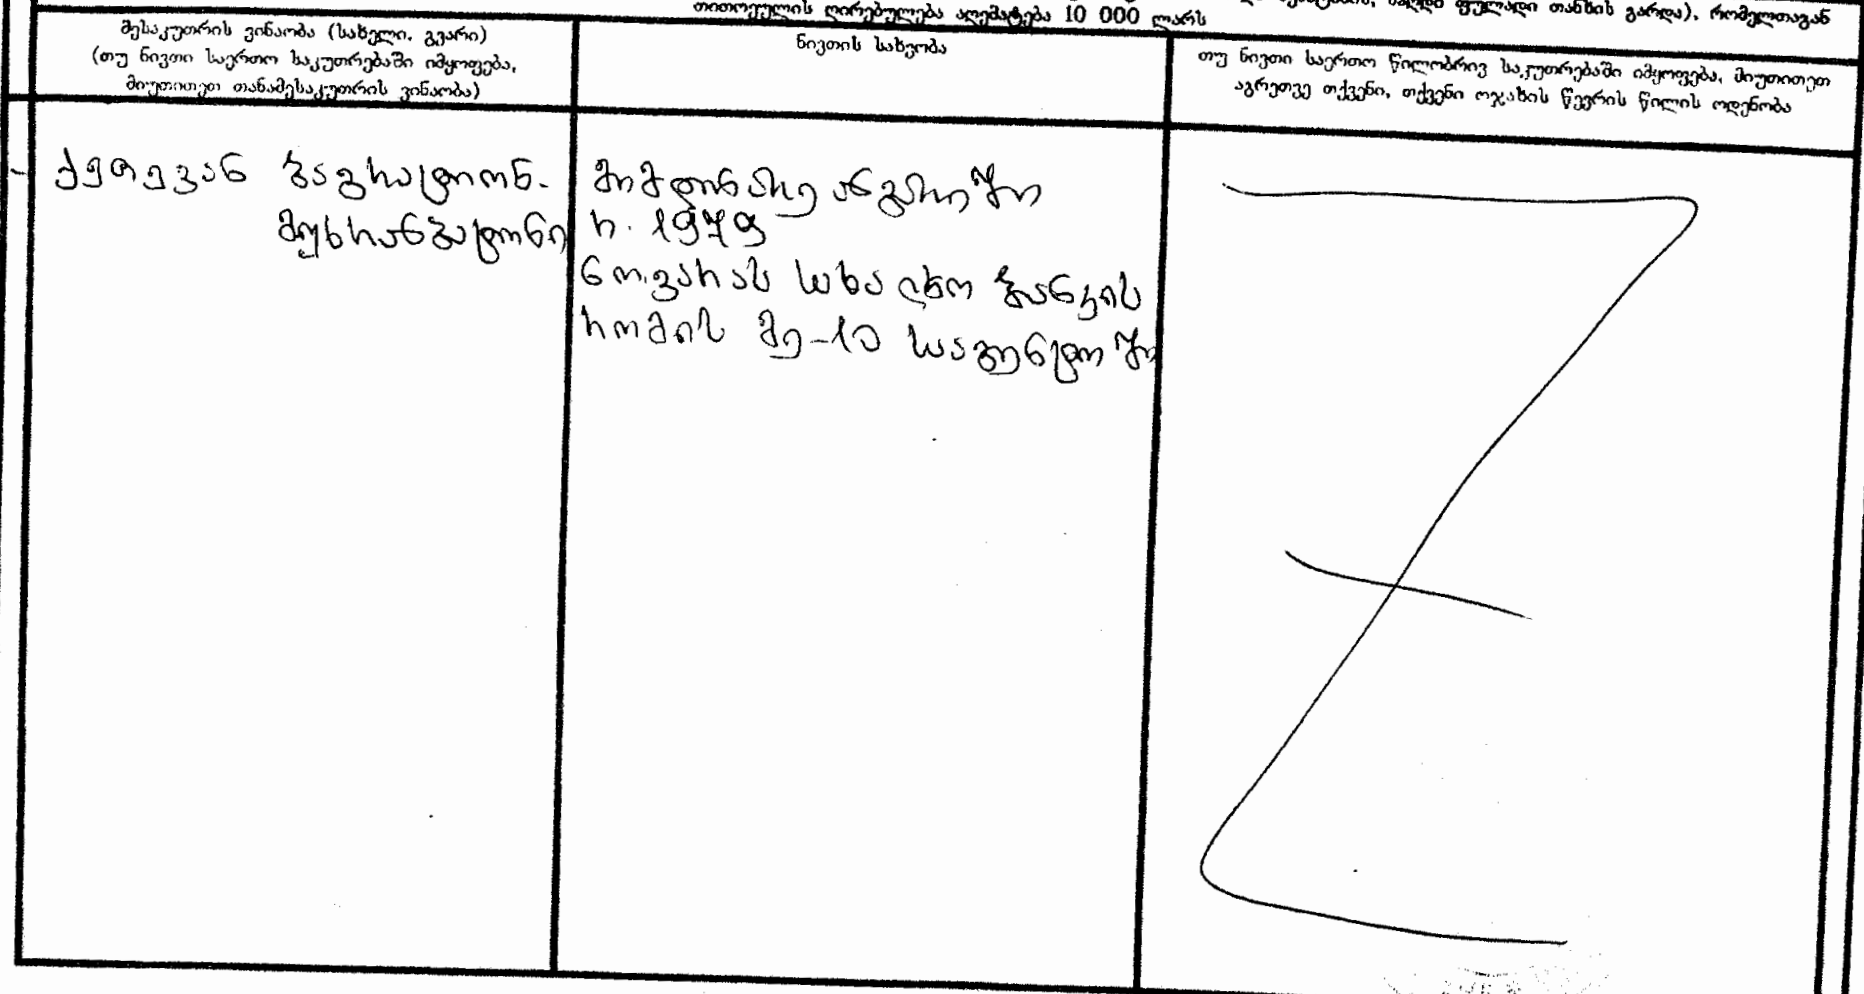 ფულადი თანხის გარდა), რომელთაგან
თითოეულის ღირებულება აღემატება 10 000 ლარს
მესაკუთრის ვინაობა (სახელი, გვარი)
(თუ ნივთი საერთო საკუთრებაში იმყოფება,
მიუთითეთ თანამესაკუთრის ვინაობა)
ნივთის სახეობა
თუ ნივთი საერთო წილობრივ საკუთრებაში იმყოფება, მიუთითეთ
აგრეთვე თქვენი, თქვენი ოჯახის წევრის წილის ოდენობა
- ქეთევან ბაგრატიონ-
მუხრანბატონი
მიმდინარე ანგარიში
ნ. 1979
ბანკის
რომის მე-10 სააგენტოში